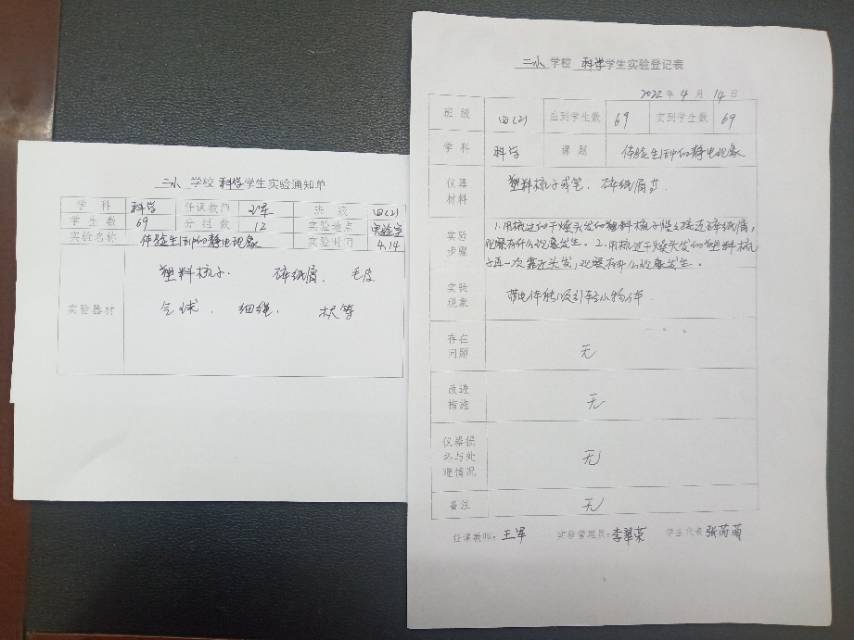 二水 学校 科学 学生实验通知单
学科 科学 任课教师 王军 班级 四(2)
学生数 69 分组数 12 实验地点 实验室
实验名称 体验生活中的静电现象 实验时间 4.14
实验器材 塑料梳子、 碎纸屑、 毛皮
气球、 细绳、 木尺等
二水 学校 科学 学生实验登记表
2022 年 4 月 14 日
班级 四(2) 应到学生数 69 实到学生数 69
学科 科学 课题 体验生活中的静电现象
仪器材料 塑料梳子或笔、碎纸屑等
实验步骤 1.用梳过的干燥头发的塑料梳子慢慢接近碎纸屑,
观察有什么现象发生。2.用梳过干燥头发的塑料梳
子再一次靠近头发,观察有什么现象发生。
实验现象 带电体能吸引轻小物体
存在问题 无
改进措施 无
仪器损坏与处理情况 无
备注 无
任课教师: 王军 实验管理员: 李翠荣 学生代表